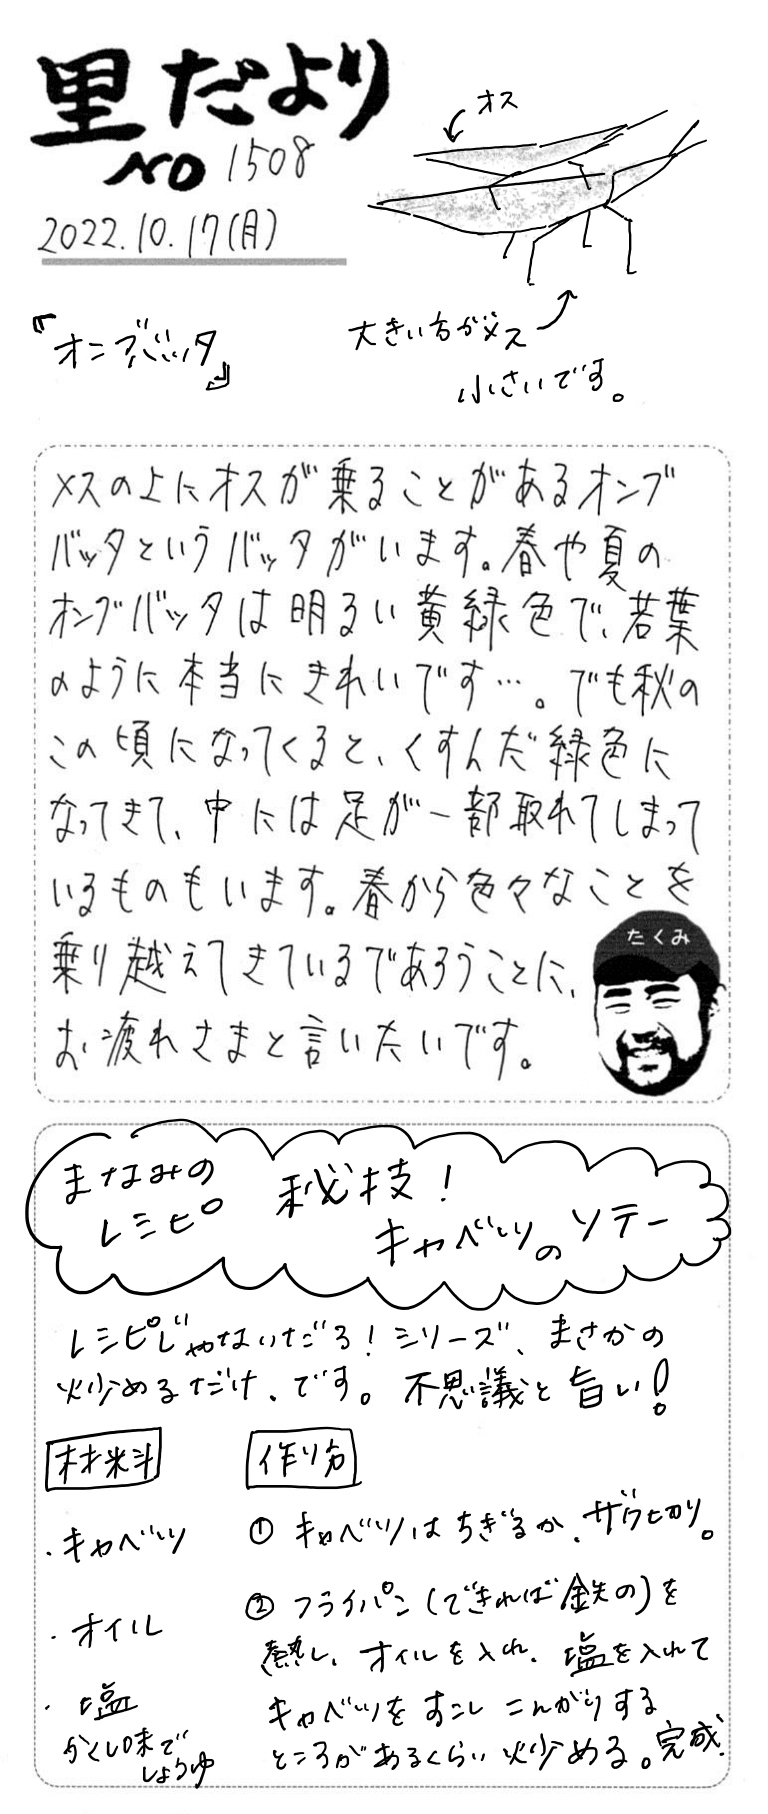 里だより
NO 1508
2022.10.17(月)
オス
『オンブバッタ』
大きい方がメス
小さいです。
メスの上にオスが乗ることがあるオンブ
バッタというバッタがいます。春や夏の
オンブバッタは明るい黄緑色で、若葉
のように本当にきれいです…。でも秋の
この頃になってくると、くすんだ緑色に
なってきて、中には足が一部取れてしまって
いるものもいます。春から色々なことを
乗り越えてきているであろうことに、
お疲れさまと言いたいです。
たくみ
まなみの
レシピ
秘技!
キャベツのソテー
レシピじゃないだろ!シリーズ、まさかの
炒めるだけ、です。不思議と旨い!
材料
・キャベツ
・オイル
・塩
かくし味で
しょうゆ
作り方
① キャベツはちぎるか、ザク切り。
② フライパン(できれば鉄の)を
熱し、オイルを入れ、塩を入れて
キャベツをすこしこんがりする
ところがあるくらい炒める。完成.